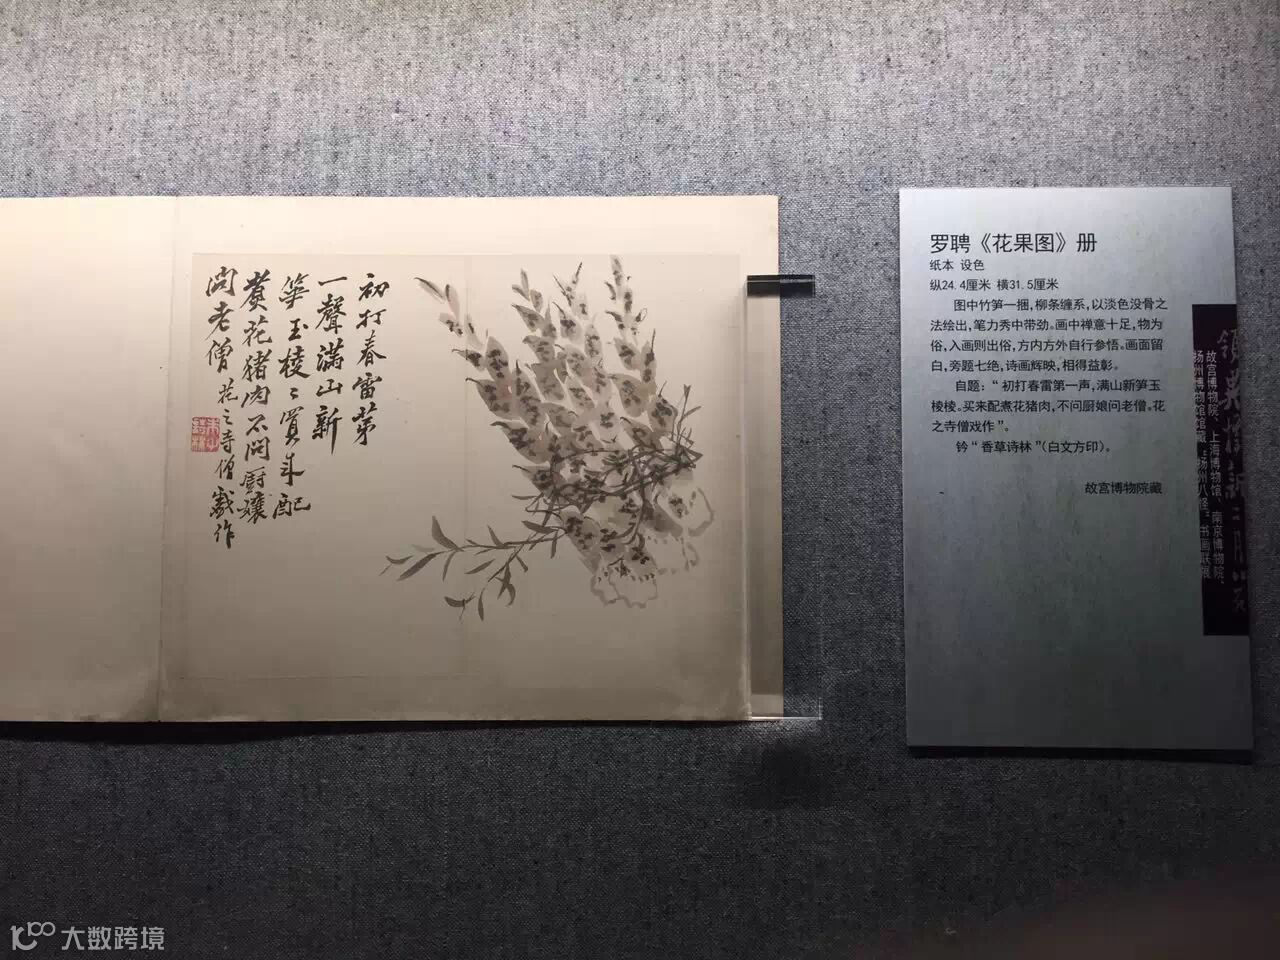 初打春雷第
一聲滿山新
笋玉棱〻買来配
煑花猪肉不問厨孃
問老僧 花之寺僧戲作
罗聘《花果图》册
纸本 设色
纵24.4厘米 横31.5厘米
图中竹笋一捆，柳条缠系，以淡色没骨之
法绘出，笔力秀中带劲。画中禅意十足，物为
俗，入画则出俗，方内方外自行参悟。画面留
白，旁题七绝，诗画辉映，相得益彰。
自题：“初打春雷第一声，满山新笋玉
棱棱。买来配煮花猪肉，不问厨娘问老僧。花
之寺僧戏作”。
钤“香草诗林”（白文方印）。
故宫博物院藏
故宫博物院、上海博物馆、南京博物院、
扬州博物馆馆藏“扬州八怪”书画联展
大数跨境